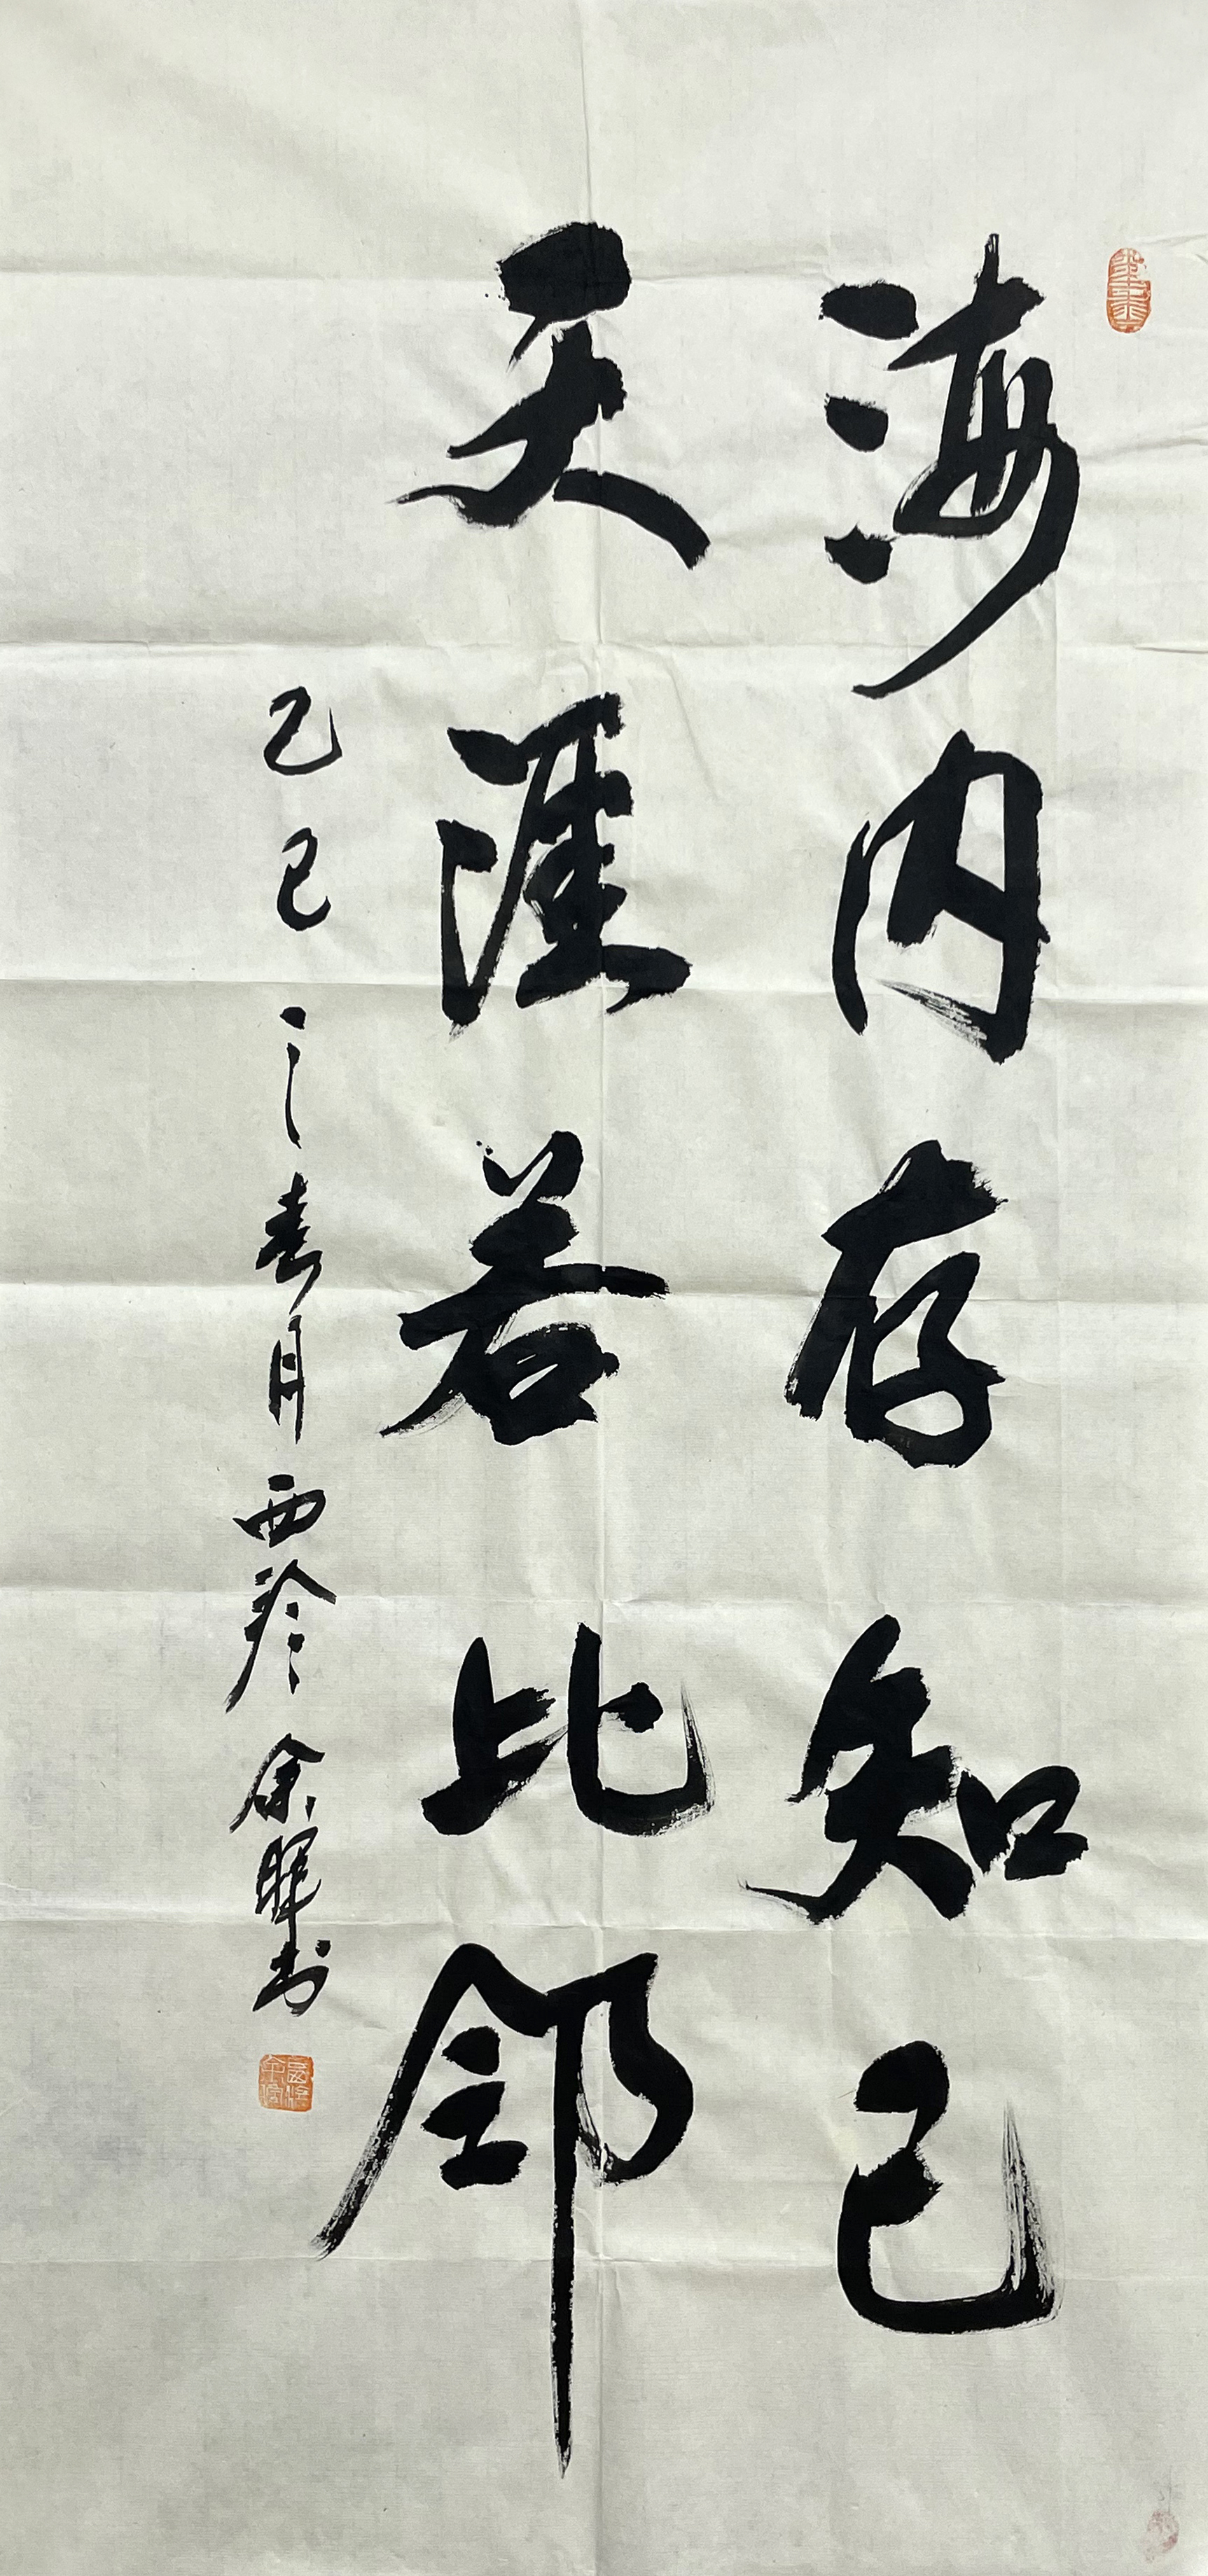 海内存知己
天涯若比邻
乙巳之春月西泠余晖书